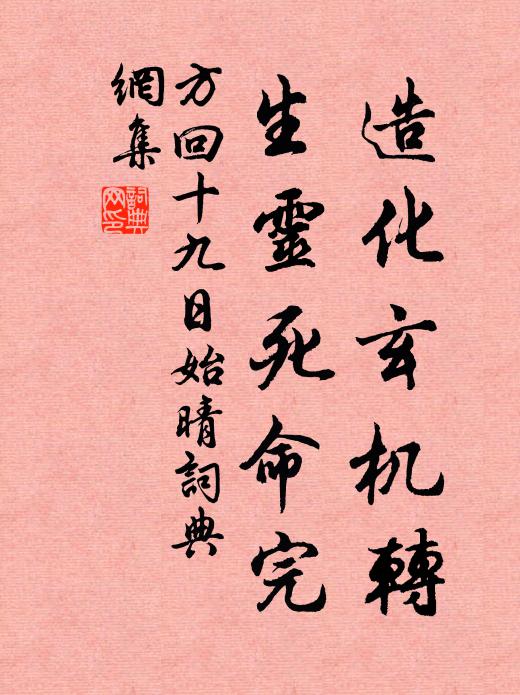 造化玄机轉
生靈死命完
方回十九日始晴詞典
網集
詞典
网印